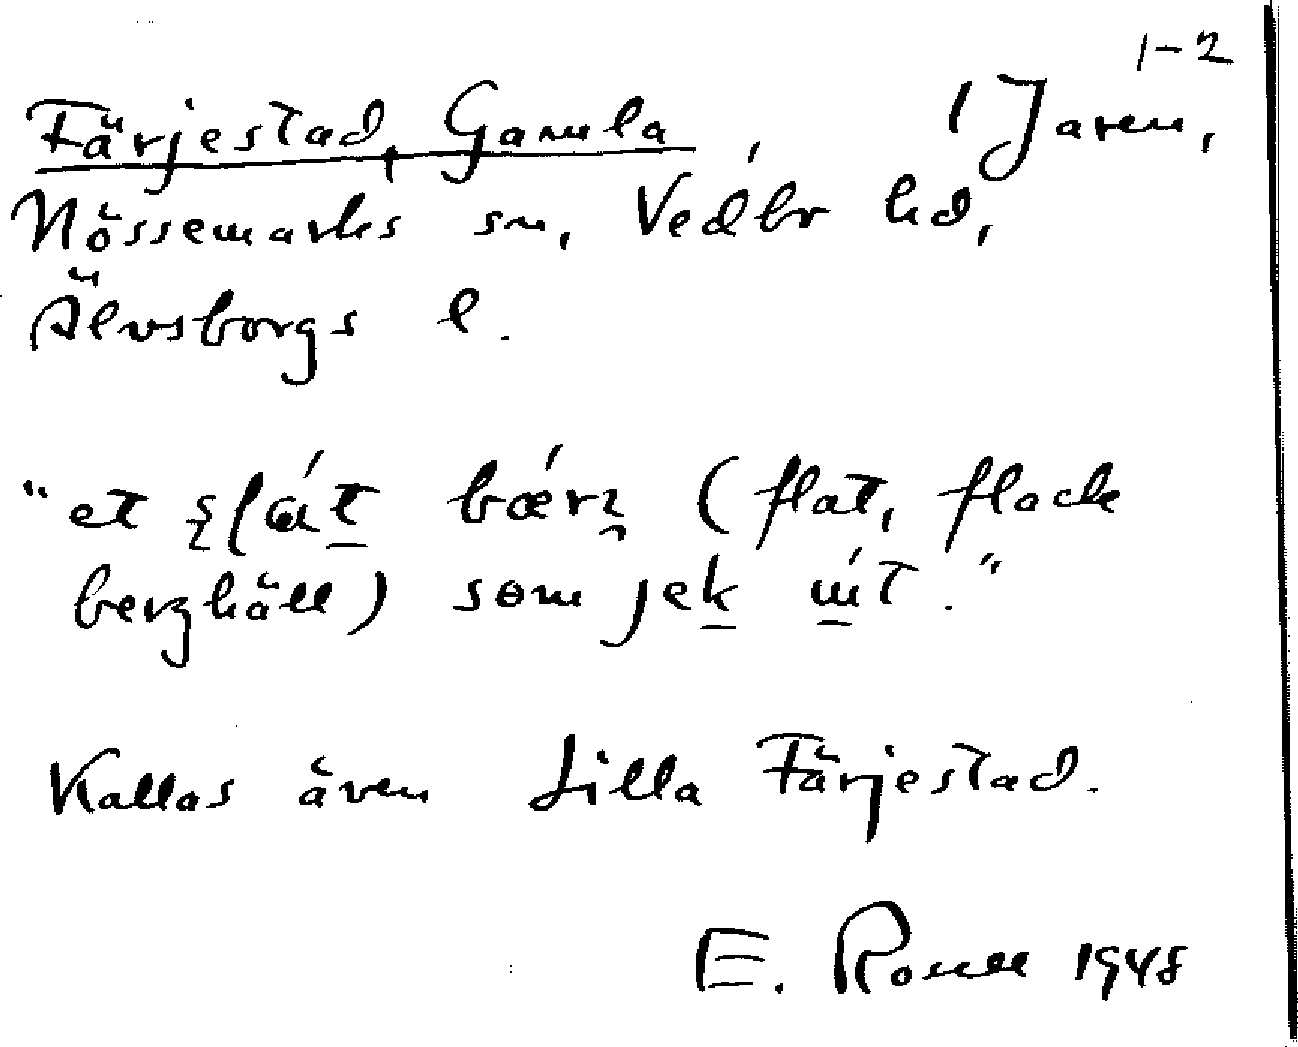 1-2
Färjestad, Gamla, i Jaren,
Nössemarks sn, Vedbo hd,
Älvsborgs l.
"et flát bærj (flat, flack
berghäll) som jek út."
Kallas även Lilla Färjestad.
E. 1948